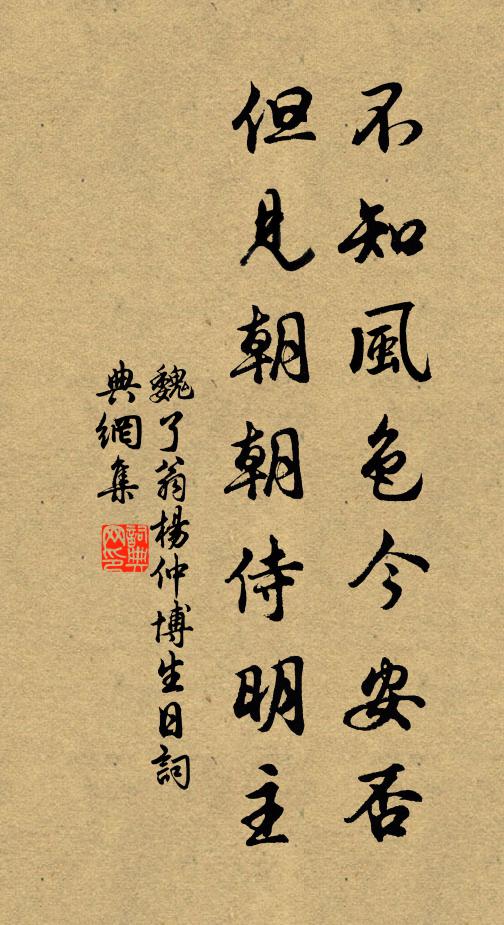 不知風色今安否
但見朝朝侍明主
魏了翁楊仲博生日詞
典網集
詞典網印